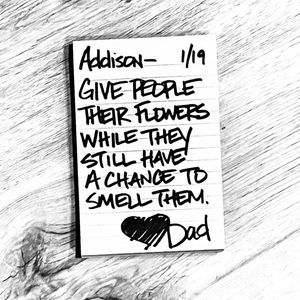 Addison- 1/19
GIVE PEOPLE
THEIR FLOWERS
WHILE THEY
STILL HAVE
A CHANCE TO
SMELL THEM.
Dad